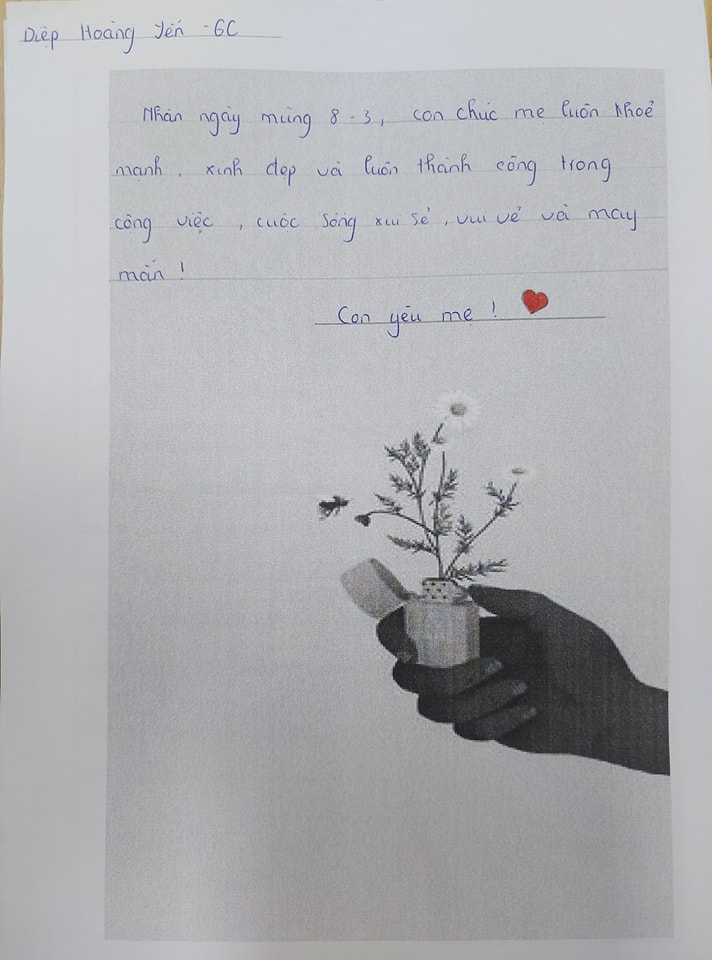 Diệp Hoàng Yến - 6C
Nhân ngày mùng 8 - 3, con chúc mẹ luôn khoẻ
mạnh, xinh đẹp và luôn thành công trong
công việc, cuộc sống xui sẻ, vui vẻ và may
mắn !
Con yêu mẹ !